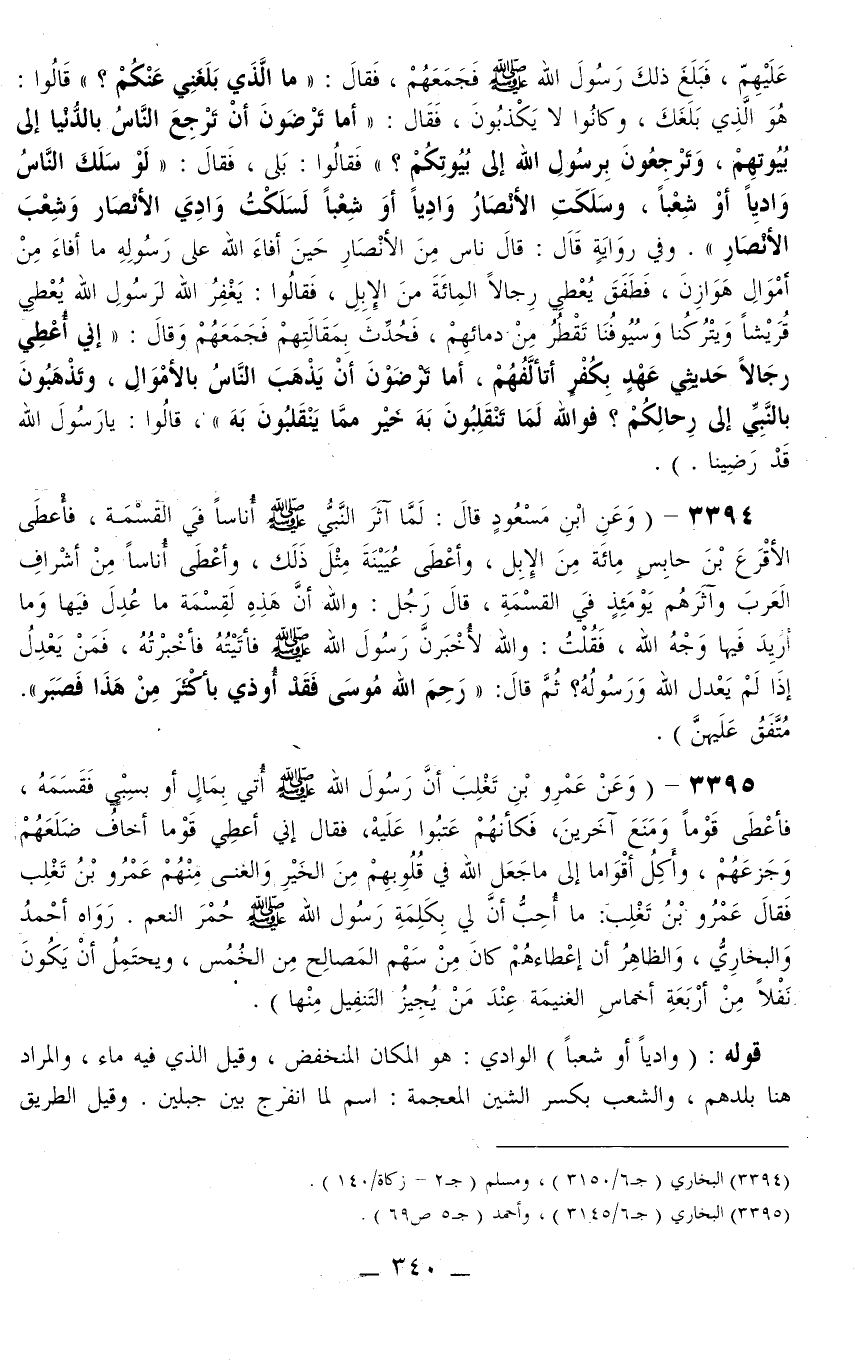 عَلَيْهِمّ ، فَبَلَغَ ذلكَ رَسُولَ الله ﷺ فَجَمَعَهُمْ ، فَقالَ : « ما الَّذَي بَلَغَنِي عَنْكُمْ ؟ » قَالُوا :
هُوَ الَّذِي بَلَغَكَ ، وكانُوا لا يَكْذبُونَ ، فَقَال : « أما تَرْضَونَ أنْ تَرْجِعَ النَّاسُ بالدُّنْيا إلى
بُيُوتهِمْ ، وَتَرْجعُونَ بِرسُولِ الله إلى بُيُوتِكُمْ ؟ » فَقالُوا : بَلى ، فَقالَ : « لَوْ سَلَكَ النَّاسُ
وَادِياً أوْ شِعْباً ، وسَلَكَتِ الأنْصَارُ وَادِياً أوَ شِعْباً لَسَلَكْتُ وَادِيَ الأنْصَارِ وَشِعْبَ
الأنْصَارِ » . وفي روَايَةٍ قَاَلَ : قالَ ناس مِنَ الأنْصَارِ حَينَ أفاءَ الله على رَسُولِهِ ما أفاءَ مِنْ
أمْوَالِ هَوَازِنَ ، فَطَفَقَ يُعْطِي رِجالاً المِائَةَ منَ الإبِلِ ، فَقالُوا : يَغْفِرُ الله لرَسُولِ الله يُعْطِي
قُرَيْشاً وَيَتْرُكنا وَسُيُوفُنَا تَقْطُرُ مِنْ دمائهِمْ ، فَحُدِّثَ بِمَقَالَتِهِمْ فَجَمَعَهُمْ وَقالَ : « إني أُعْطِي
رِجَالاً حَديثِي عَهْدٍ بِكُفْرٍ أتألَّفُهُمْ ، أما تَرْضَوْنَ أنْ يَذْهَبَ النَّاسُ بالأمْوَالِ ، وتَذْهَبُونَ
بالنَّبِيِّ إلى رِحالِكُمْ ؟ فوالله لَمَا تَنْقَلِبُونَ بَهَ خَيْر ممَّا يَنْقَلبُونَ بَهَ » ، قالُوا : يارَسُولَ الله
قَدْ رَضِينا . ) .
٣٣٩٤ – ( وَعَنِ ابْنِ مَسْعُودٍ قالَ : لَمَّا آثَرَ النَّبيُّ ﷺ أُناساً فيَ القَسْمَـة ، فأعْطَى
الأقْرَعَ بْنَ حابِسٍ مِائَة مِنَ الإبِل ، وأعْطَى عُيَيْنَةَ مِثْلَ ذَلَكَ ، وأعْطَى أُناساً مِنْ أشْرافِ
العَربَ وآثَرَهُم يَوْمَئِذٍ فيَ القسْمَةِ ، قالَ رَجُل : والله أنَّ هَذِهِ لَقِسْمَة ما عُدِلَ فَيها وَما
أُرِيدَ فَيها وَجْهُ الله ، فَقُلْتُ : والله لأُخْبَرنَّ رَسُولَ الله ﷺ فأتَيْتُهُ فأخْبرْتُهُ ، فَمَنْ يَعْدِلُ
إذَا لَمْ يَعْدل الله وَرَسُولُهُ؟ ثُمَّ قالَ: « رَحِمَ الله مُوسَى فَقَدْ أُوذي بأكْثَرَ مِنْ هَذَا فَصَبَر».
مُتَّفَقُ عَلَيهنَّ ) .
٣٣٩٥ – ( وَعَنْ عَمْرِو بْنِ تَغْلِبَ أنَّ رَسُولَ الله ﷺ أُتي بِمَال أو بسِبْيٍ فَقَسَمَهُ ،
فأعْطَى قَوْماً وَمَنَعَ آخَرينَ، فَكأنهُمْ عَتبُوا عَلَيَهْ، فقال إني أعطِي قَوْما أخافُ ضلَعَهُمْ
وَجَزعَهُمْ ، وأَكِلُ أقْوَاما إلى ماجَعَل الله في قُلُوبهِمْ مِنَ الخَيْرِ وَالغنـى مِنْهُمْ عَمْرُو بْنُ تَغْلِب
فَقالَ عَمْرُو بْنُ تَغْلِب: ما أُحِبُّ أنَّ لي بِكَلِمَةِ رَسُول الله ﷺ حُمْرَ النعم . رَوَاه أحْمدُ
وَالبخارِيُّ ، وَالظاهِرُ أن إعْطاءَهُمْ كانَ مِنْ سَهْمِ المَصالِح مِن الخُمُس ، ويحتَمِلُ أنْ يَكُونَ
نَفْلاً مِنْ أرْبَعَةِ أخماسِ الغنيمَة عِنْدَ مَنْ يُجيزُ التَنفِيل مِنْها ) .
قوله : ( وادياً أو شعباً ) الوادي : هو المكان المنخفض ، وقيل الذي فيه ماء ، والمراد
هنا بلدهم ، والشعب بكسر الشين المعجمة : اسم لما انفرج بين جبلين . وقيل الطريق
(٣٣٩٤) البخاري ( جـ٣١٥٠/٦ ) ، ومسلم ( جـ٢ – زكاة/١٤٠ ) .
(٣٣٩٥) البخاري ( جـ٣١٤٥/٦ ) ، وأحمد ( جـ٥ ص٦٩ ) .
– ٣٤٠ –